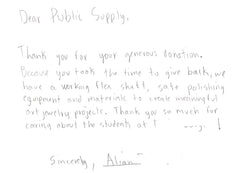 Dear Public Supply,
Thank you for your generous donation.
Because you took the time to give back, we
have a working flex shaft, safe polishing
equipment and materials to create meaningful
art jewelry projects. Thank you so much for
caring about the students at !
Sincerely,